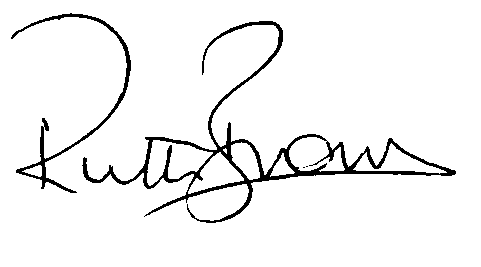 Ruth Brown